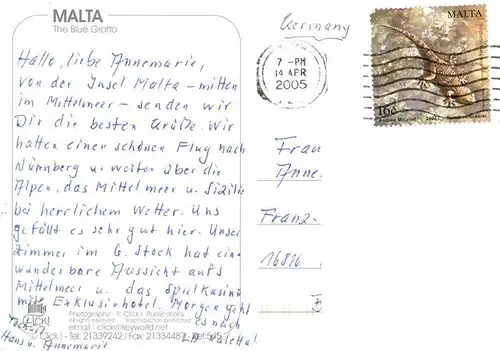 MALTA
The Blue Grotto
Hallo, liebe Annemarie,
von der Insel Malta – mitten
im Mittelmeer – senden wir
Dir die besten Grüße. Wir
hatten einen schönen Flug nach
Nürnberg u. weiter über die
Alpen, das Mittelmeer u. Sizilie
bei herrlichem Wetter. Uns
gefällt es sehr gut hier. Unser
Zimmer im 6. Stock hat eine
wunderbare Aussicht aufs
Mittelmeer u. das Spielkasino
mit Exklusivhotel. Morgen geht
es nach
Valetta!
Hans u. Annemarie
Photography: © Click ! Publications
All rights reserved Reproduction prohibited
email : click@keyworld.net
© Click ! - Tel: 21339242 / Fax: 21334487
CLICK!
Germany
7 - PM
14 APR
2005
MALTA
16c
Frau
Anne.
Franz.